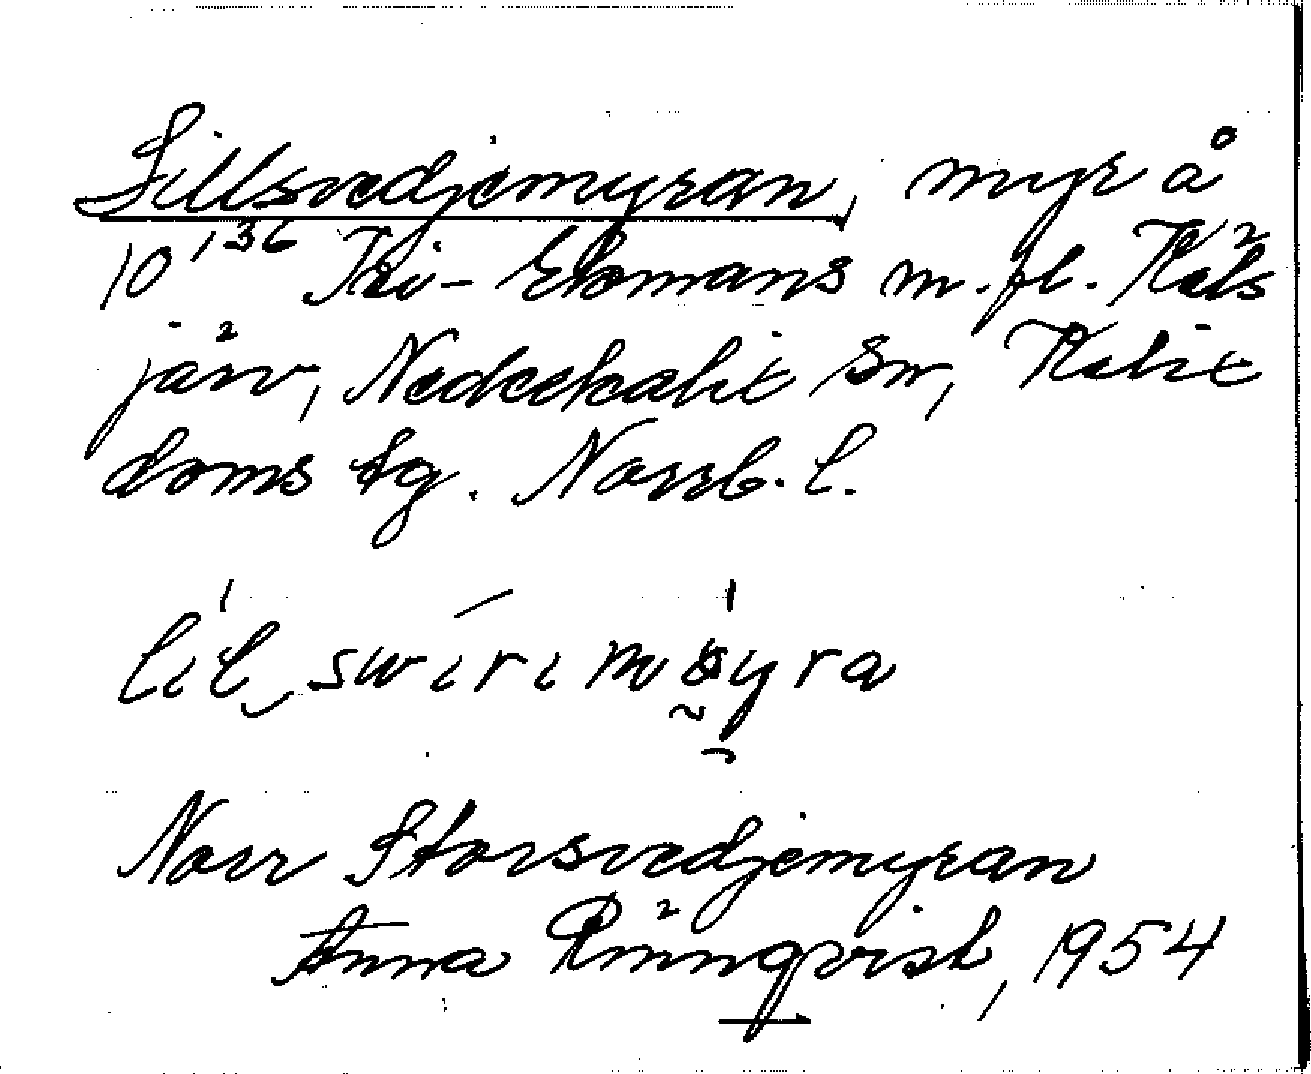 Lillsvedjemyran, myr å
10¹³⁶ Kri-Ekmans m.fl. Käls
järv, Nederkalix sn, Kalix
doms tg. Norrb. l.
lil swirimyra
Norr Storsvedjemyran
Anna Rönnqvist, 1954